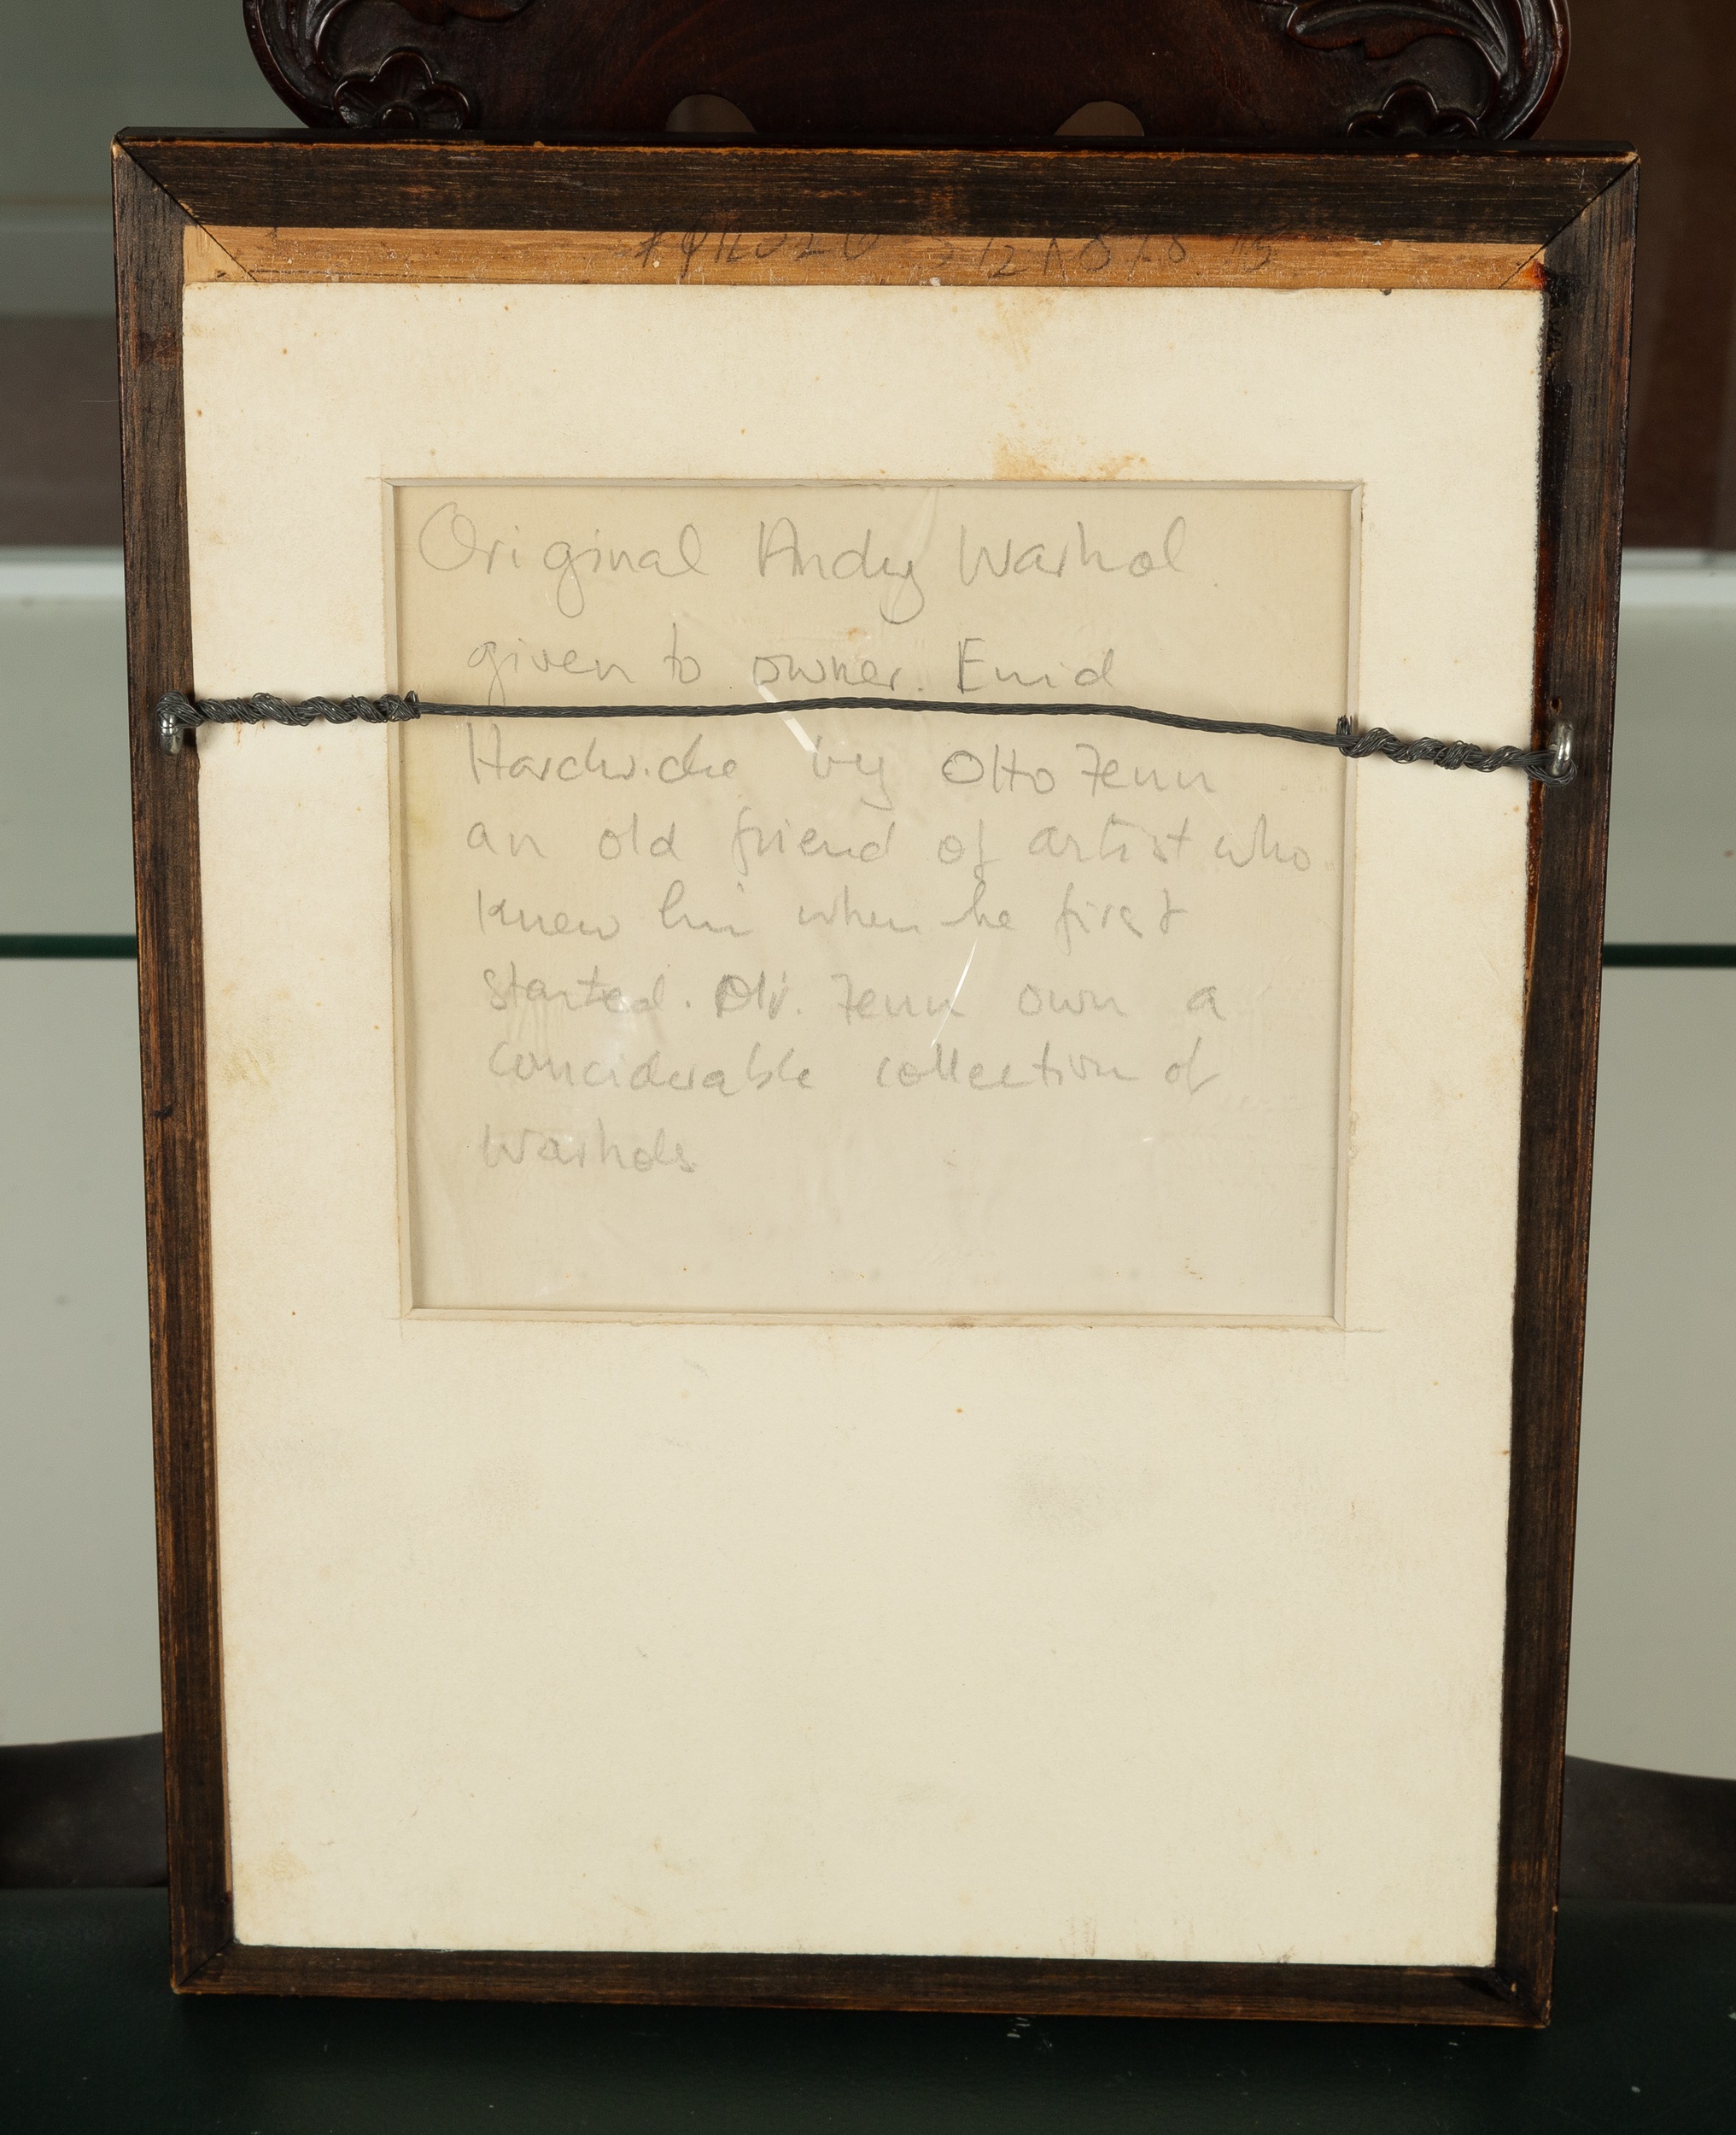 Original Andy Warhol
given to owner. Enid
Hardwicke by Otto Fenn
an old friend of artist who
knew him when he first
started. Mr. Fenn own a
conciderable collection of
Warhols